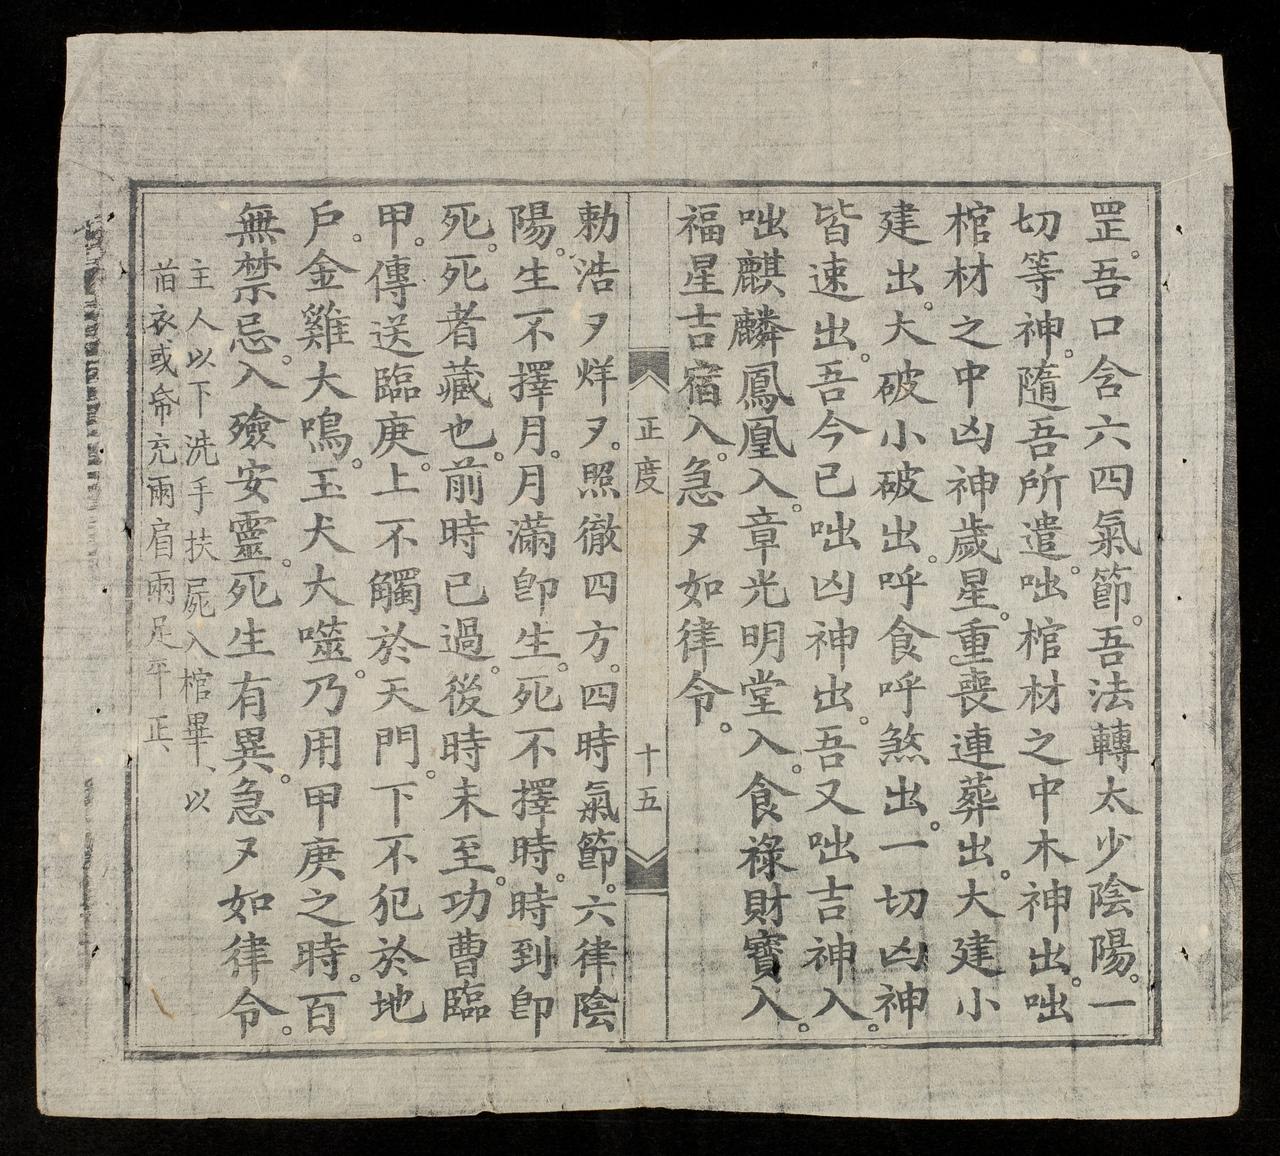 罡。吾口含六四氣節。吾法轉太少陰陽。一
切等神。隨吾所遣。咄棺材之中木神出。咄
棺材之中凶神歲星。重喪連葬出。大建小
建出。大破小破出。呼食呼煞出。一切凶神
皆速出。吾今已咄凶神出。吾又咄吉神入。
咄麒麟鳳凰入。章光明堂入。食祿財寶入。
福星吉宿入。急〻如律令。
正度
十五
勅浩〻烊〻。照徹四方。四時氣節。六律陰
陽。生不擇月。月滿卽生。死不擇時。時到卽
死。死者藏也。前時已過。後時未至。功曹臨
甲。傳送臨庚。上不觸於天門。下不犯於地
户。金雞大鳴。玉犬大噬。乃用甲庚之時。百
無禁忌。入殮安靈。死生有異。急〻如律令。
主人以下洗手扶屍入棺畢、以
旧衣或帋充兩肩兩足平正、